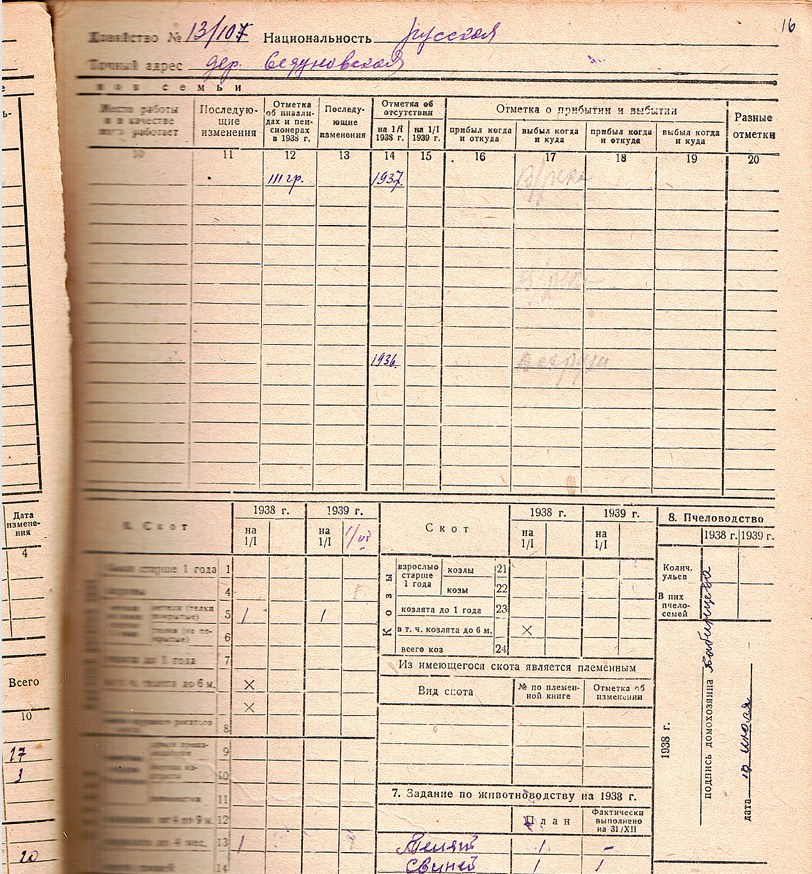 16
Хозяйство № 13/107 Национальность русская
Точный адрес дер. Ведуновская
нов семьи
Место работы и в качестве кого работает
Последующие изменения
Отметка об инвалидах и пенсионерах в 1938 г.
Последующие изменения
Отметка об отсутствии
на 1/I 1938 г.
на 1/I 1939 г.
Отметка о прибытии и выбытии
прибыл когда и откуда
выбыл когда и куда
прибыл когда и откуда
выбыл когда и куда
Разные отметки
10 11 12 13 14 15 16 17 18 19 20
III гр. 1937
1936
Дата изменения
4
Всего
10
17
3
20
6. Скот
1938 г. 1939 г.
на 1/I на 1/I
старше 1 года 1
4
нетели (телки покрытые) 5 1 1
телки (не покрытые) 6
до 1 года 7
телята до 6 м. ×
×
рогатого 8
9
10
11
от 4 до 9 м. 12
до 4 мес. 13 1
14
Скот
1938 г. 1939 г.
на 1/I на 1/I
Козы
взрослые старше 1 года
козлы 21
козы 22
козлята до 1 года 23
в т. ч. козлята до 6 м. ×
всего коз 24
Из имеющегося скота является племенным
Вид скота
№ по племенной книге
Отметка об изменении
7. Задание по животноводству на 1938 г.
План
Фактически выполнено на 31/XII
Телят 1 –
Свиней 1 1
8. Пчеловодство
1938 г. 1939 г.
Колич. ульев
В них пчелосемей
1938 г.
подпись домохозяина
дата 10 июля